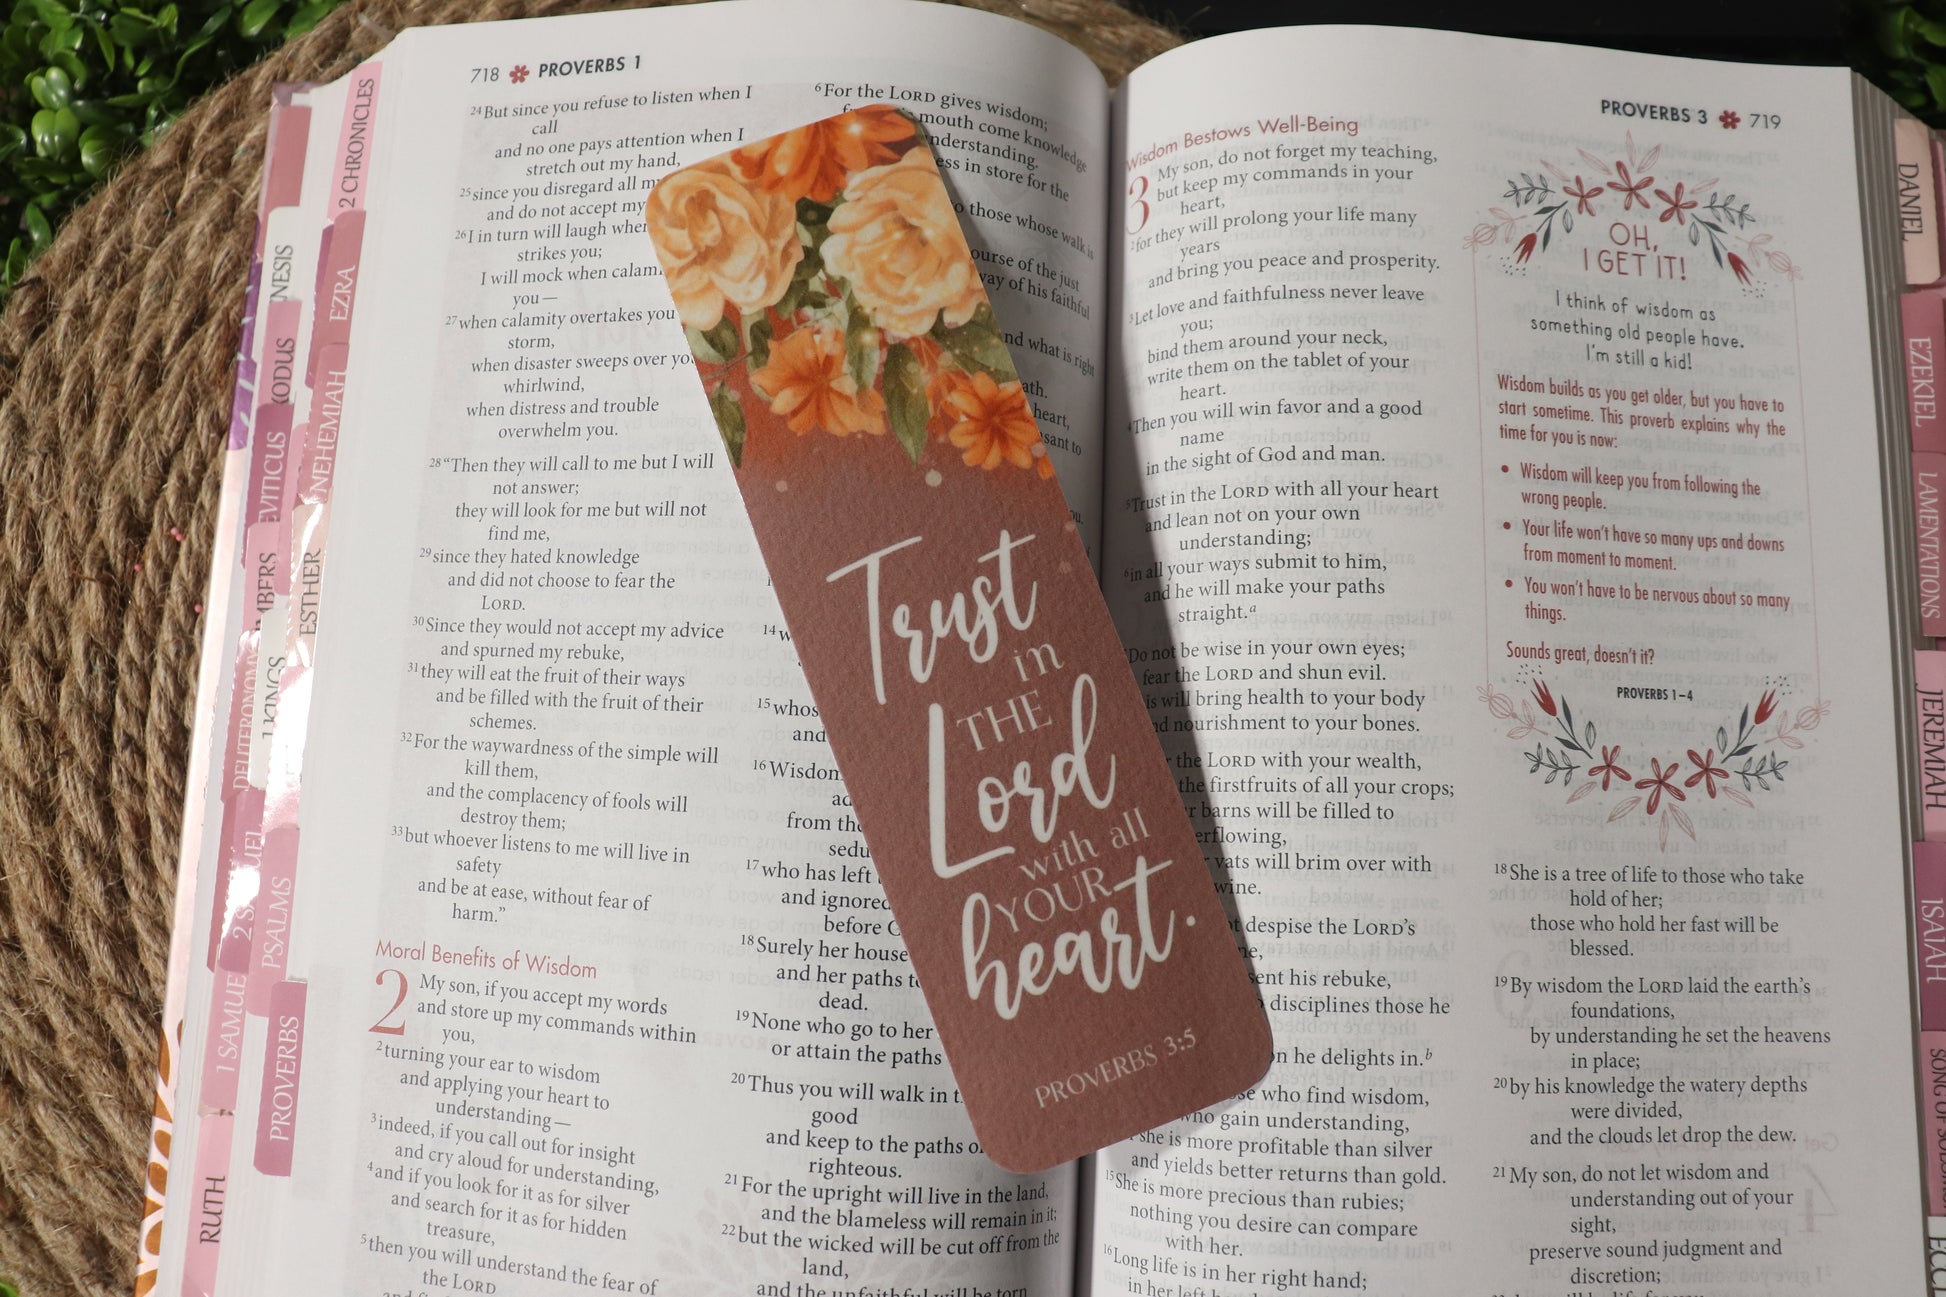 718 PROVERBS 1
24 But since you refuse to listen when I
call
and no one pays attention when I
stretch out my hand,
25 since you disregard all my
and do not accept my
26 I in turn will laugh when
strikes you;
I will mock when calam
you—
27 when calamity overtakes you
storm,
when disaster sweeps over you
whirlwind,
when distress and trouble
overwhelm you.
28 "Then they will call to me but I will
not answer;
they will look for me but will not
find me,
29 since they hated knowledge
and did not choose to fear the
LORD.
30 Since they would not accept my advice
and spurned my rebuke,
31 they will eat the fruit of their ways
and be filled with the fruit of their
schemes.
32 For the waywardness of the simple will
kill them,
and the complacency of fools will
destroy them;
33 but whoever listens to me will live in
safety
and be at ease, without fear of
harm."
Moral Benefits of Wisdom
2 My son, if you accept my words
and store up my commands within
you,
2 turning your ear to wisdom
and applying your heart to
understanding—
3 indeed, if you call out for insight
and cry aloud for understanding,
4 and if you look for it as for silver
and search for it as for hidden
treasure,
5 then you will understand the fear of
the LORD
6 For the LORD gives wisdom;
mouth come knowledge
nderstanding.
ess in store for the
to those whose walk is
ourse of the just
way of his faithful
nd what is right
ath.
heart,
sant to
you.
14 w
15 whos
and
16 Wisdom
ad
from the
sedu
17 who has left
and ignored
before G
18 Surely her house
and her paths to
dead.
19 None who go to her
or attain the paths
20 Thus you will walk in t
good
and keep to the paths o
righteous.
21 For the upright will live in the land,
and the blameless will remain in it;
22 but the wicked will be cut off from the
land,
and the unfaithful will be torn
Trust
in
THE
Lord
with all
YOUR
heart.
PROVERBS 3:5
PROVERBS 3 719
Wisdom Bestows Well-Being
3 My son, do not forget my teaching,
but keep my commands in your
heart,
2 for they will prolong your life many
years
and bring you peace and prosperity.
3 Let love and faithfulness never leave
you;
bind them around your neck,
write them on the tablet of your
heart.
4 Then you will win favor and a good
name
in the sight of God and man.
5 Trust in the LORD with all your heart
and lean not on your own
understanding;
6 in all your ways submit to him,
and he will make your paths
straight.a
Do not be wise in your own eyes;
fear the LORD and shun evil.
is will bring health to your body
nd nourishment to your bones.
r the LORD with your wealth,
the firstfruits of all your crops;
r barns will be filled to
erflowing,
r vats will brim over with
wine.
t despise the LORD's
ne,
sent his rebuke,
disciplines those he
on he delights in.b
se who find wisdom,
who gain understanding,
she is more profitable than silver
and yields better returns than gold.
15 She is more precious than rubies;
nothing you desire can compare
with her.
16 Long life is in her right hand;
in her left
OH,
I GET IT!
I think of wisdom as
something old people have.
I'm still a kid!
Wisdom builds as you get older, but you have to
start sometime. This proverb explains why the
time for you is now:
• Wisdom will keep you from following the
wrong people.
• Your life won't have so many ups and downs
from moment to moment.
• You won't have to be nervous about so many
things.
Sounds great, doesn't it?
PROVERBS 1–4
18 She is a tree of life to those who take
hold of her;
those who hold her fast will be
blessed.
19 By wisdom the LORD laid the earth's
foundations,
by understanding he set the heavens
in place;
20 by his knowledge the watery depths
were divided,
and the clouds let drop the dew.
21 My son, do not let wisdom and
understanding out of your
sight,
preserve sound judgment and
discretion;
2 CHRONICLES
EZRA
NEHEMIAH
ESTHER
NESIS
XODUS
EVITICUS
MBERS
DEUTERONOM
1 KINGS
2 SAMUEL
PSALMS
1 SAMUE
PROVERBS
RUTH
DANIEL
EZEKIEL
LAMENTATIONS
JEREMIAH
ISAIAH
SONG OF SOLOMON
ECCL